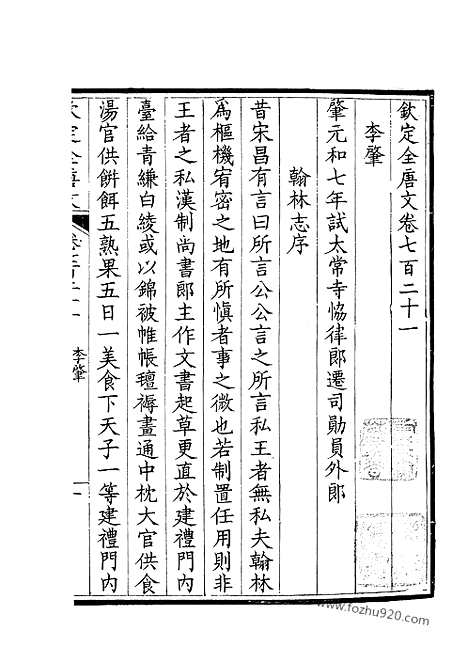 欽定全唐文卷七百二十一
李肇
肇元和七年試太常寺協律郎遷司勛員外郎
翰林志序
昔宋昌有言曰所言公公言之所言私王者無私夫翰林
為樞機宥密之地有所慎者事之微也若制置任用則非
王者之私漢制尚書郎主作文書起草更直於建禮門內
臺給青縑白綾或以錦被帷帳氊褥畫通中枕大官供食
湯官供餅餌五熟果五日一美食下天子一等建禮門內
欽定全唐文 卷七百二十一 李肇 一
www.fozhu920.com